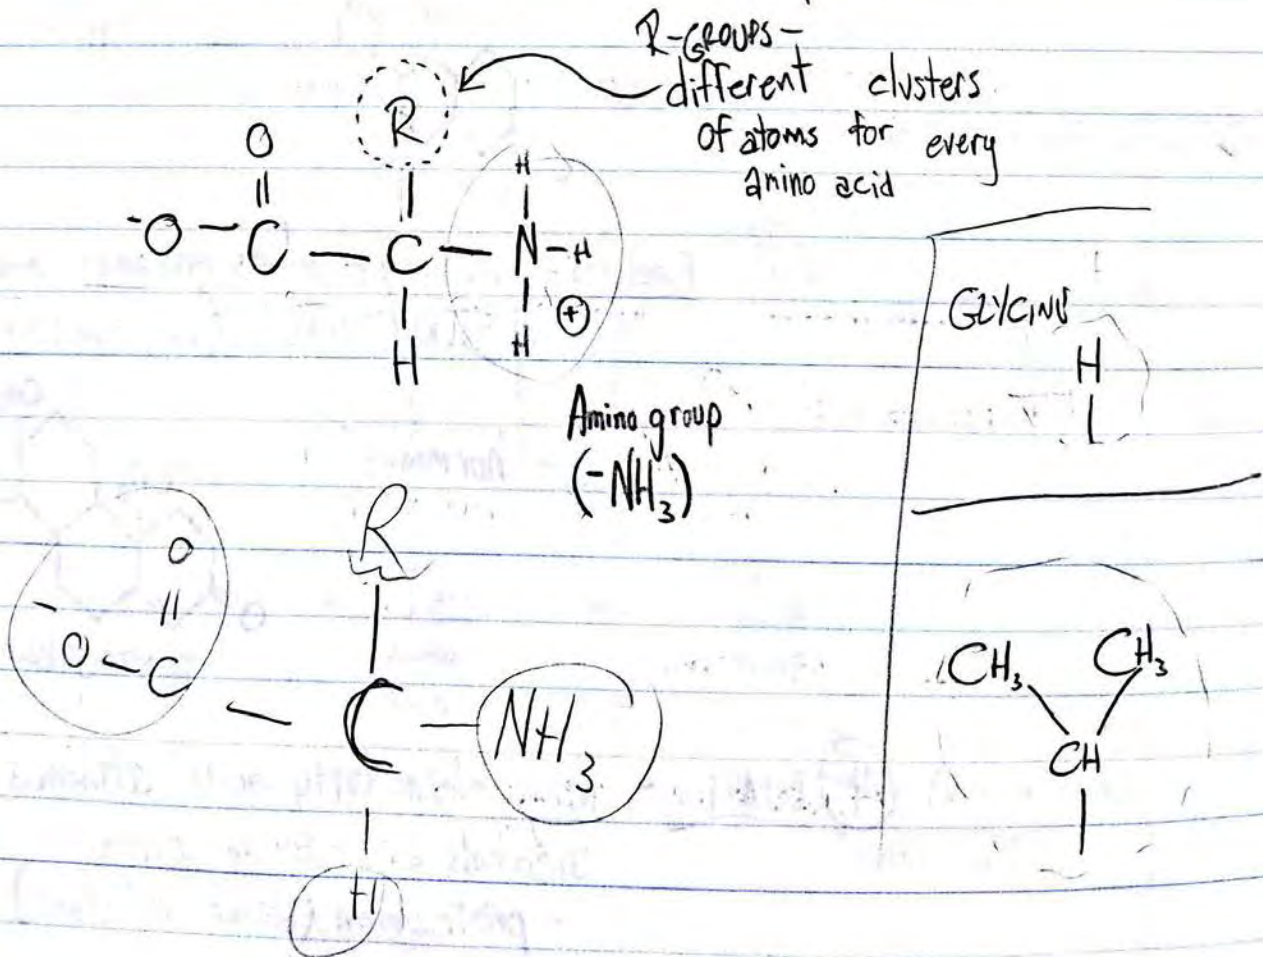 R-GROUPS-
different clusters
of atoms for every
amino acid
R
O
||
-O - C - C - N - H
H
H
H
+
Amino group
(-NH3)
R
O
||
-O - C - C - NH3
H
GLYCINE
H
CH3 CH3
CH